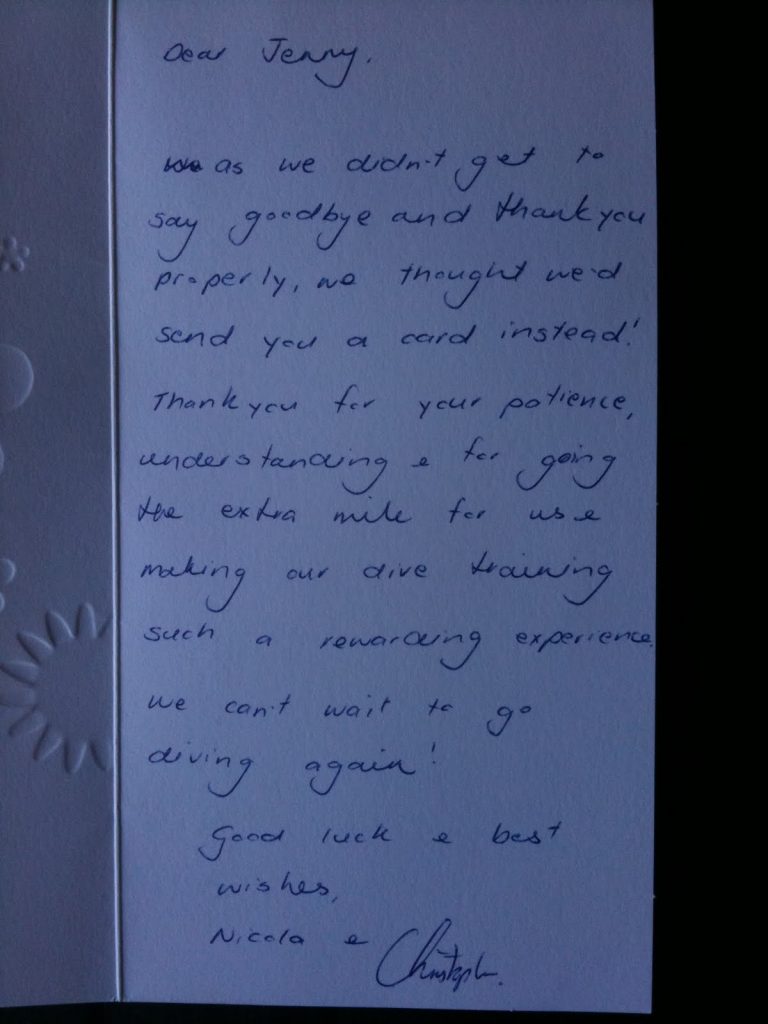 Dear Jenny,
as we didn't get to
say goodbye and thankyou
properly, we thought we'd
send you a card instead!
Thankyou for your patience,
understanding & for going
the extra mile for us &
making our dive training
such a rewarding experience.
We can't wait to go
diving again!
Good luck & best
wishes,
Nicola & Christoph.